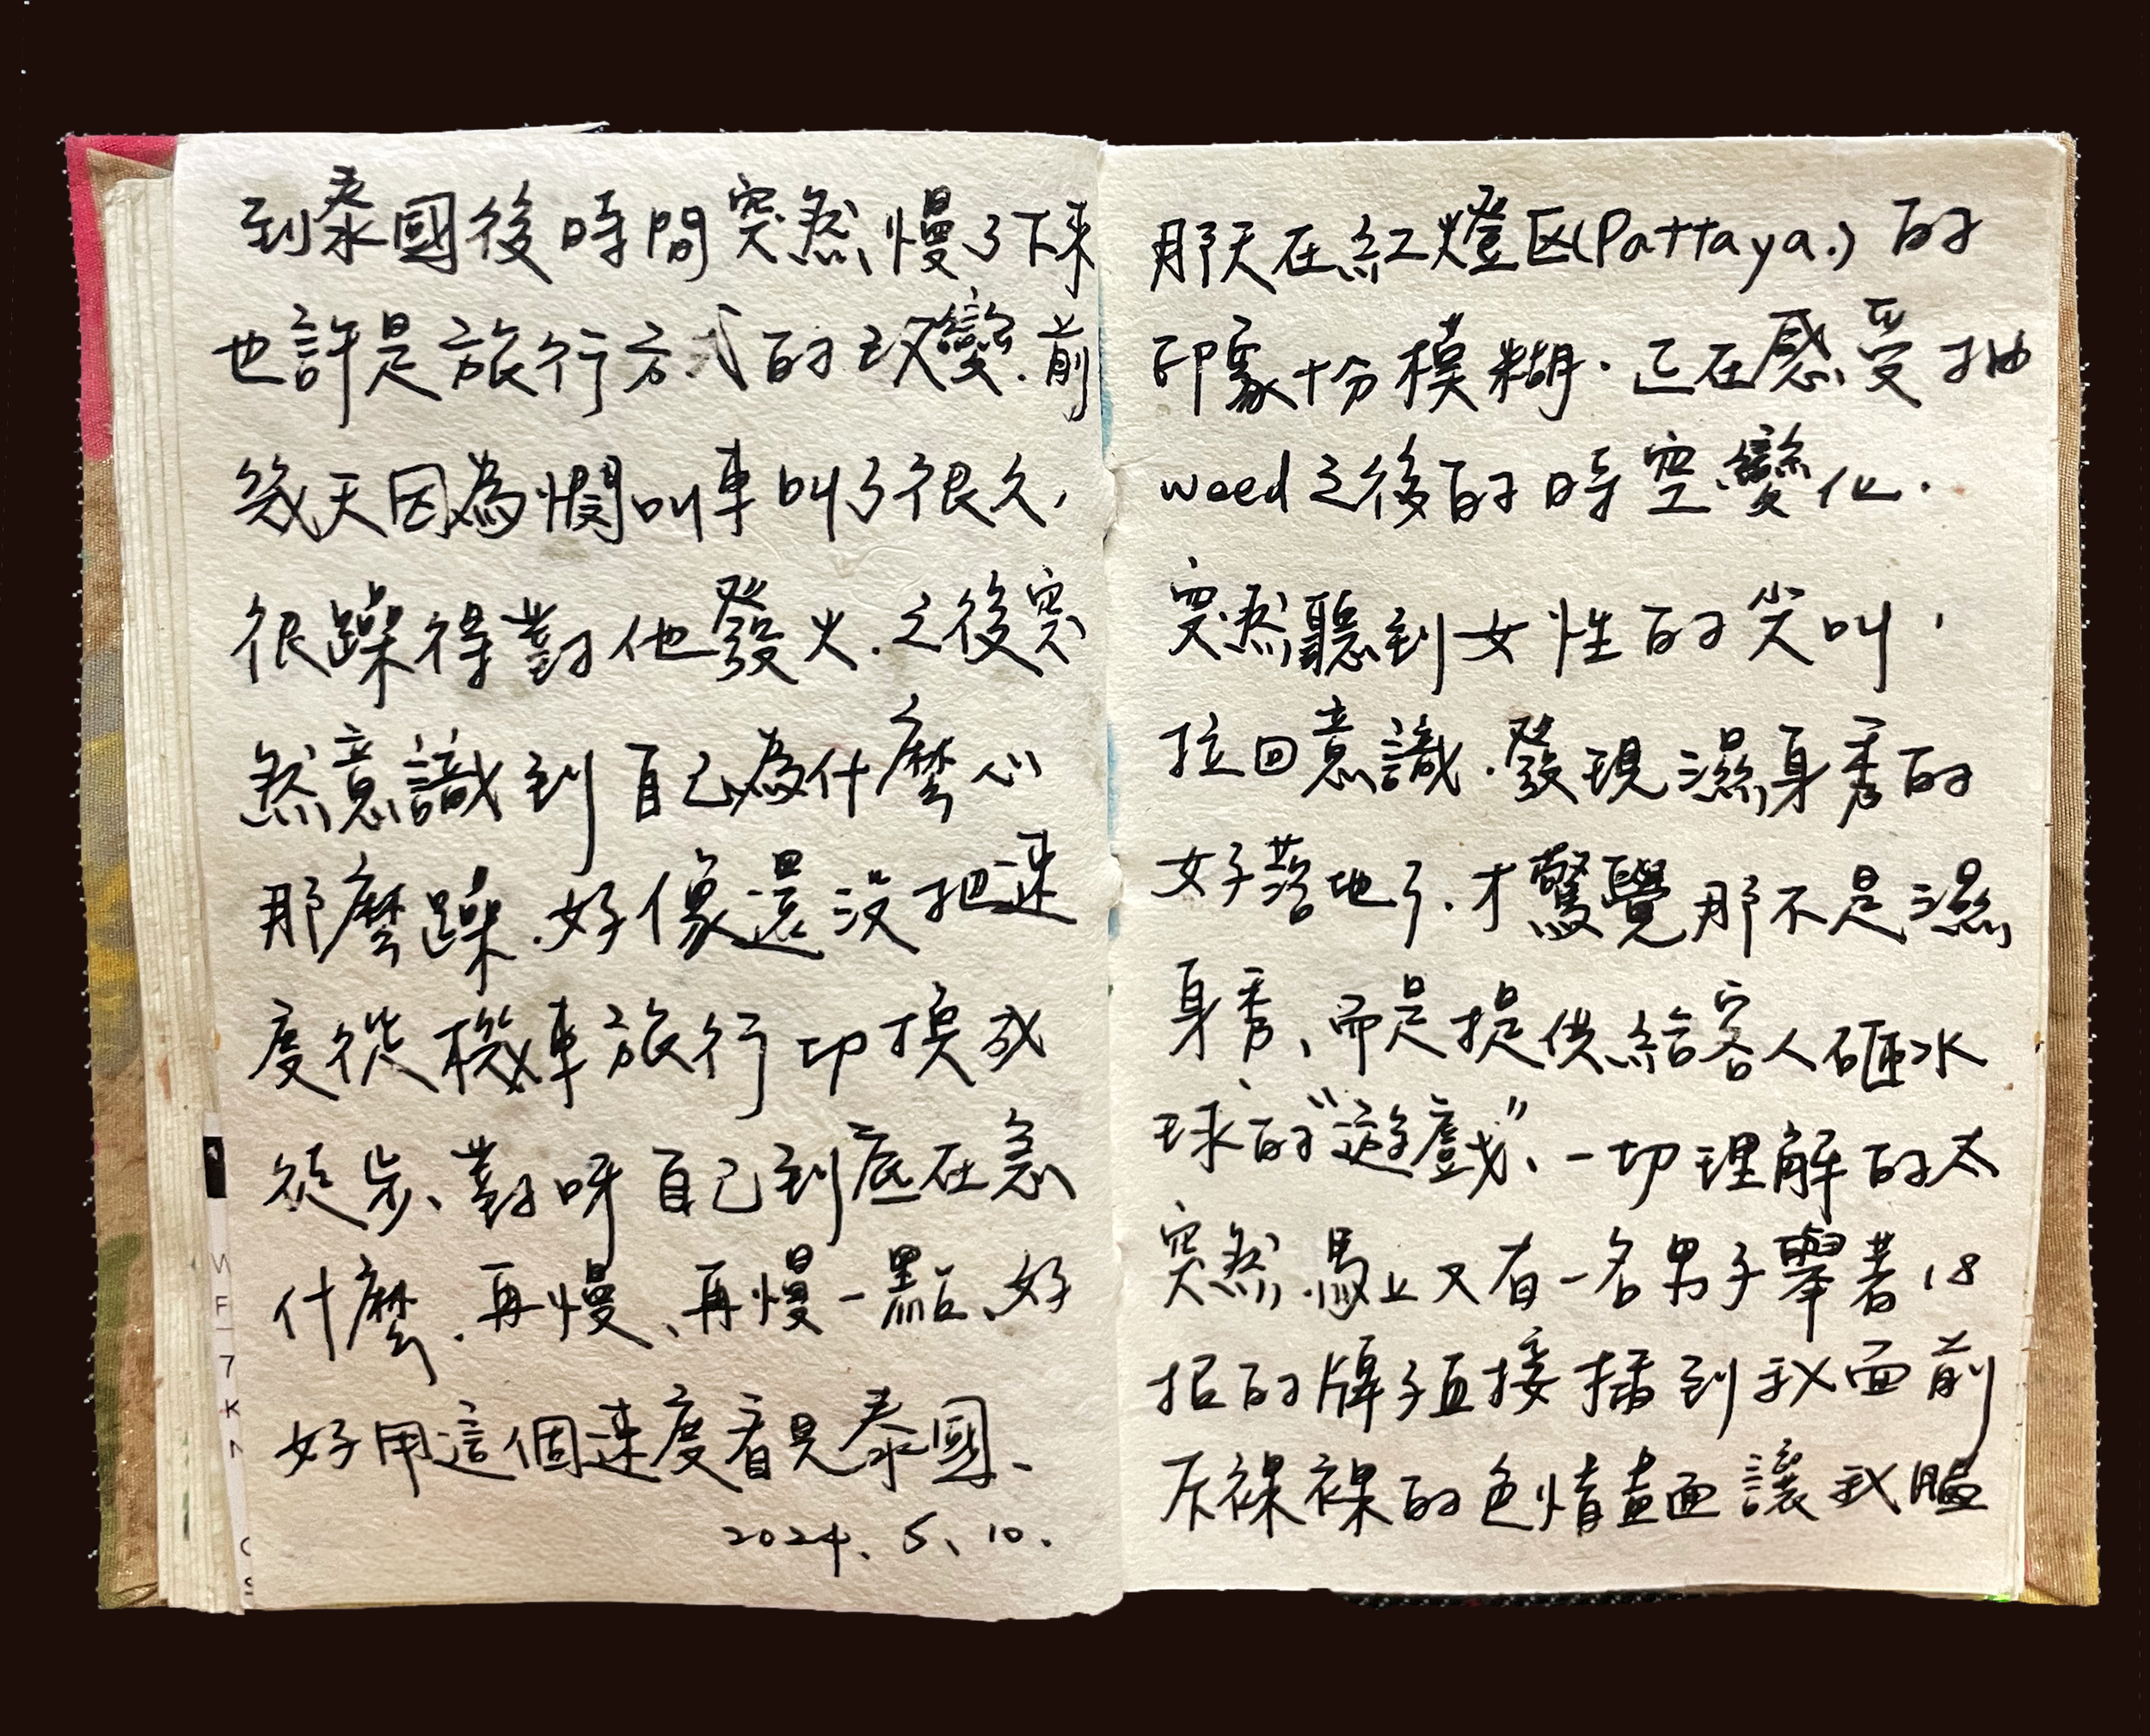 到泰國後時間突然慢了下來
也許是旅行方式的改變.前
幾天因為憫叫車叫了很久,
很躁得對他發火.之後突
然意識到自己為什麼心
那麼躁.好像還沒把速
度從機車旅行切換成
徒步、對呀自己到底在急
什麼.再慢、再慢一點、好
好用這個速度看見泰國、
2024、5、10.
MF-7KN
那天在紅燈区(Pattaya.)的
印象十分模糊.正在感受抽
weed之後的時空變化.
突然聽到女性的尖叫,
拉回意識.發現濕身秀的
女子落地了.才驚覺那不是濕
身秀、而是提供給客人砸水
球的"遊戲"、一切理解的太
突然.馬上又有一名男子舉著18
招的牌子直接插到我面前
斥裸裸的色情畫面讓我腦